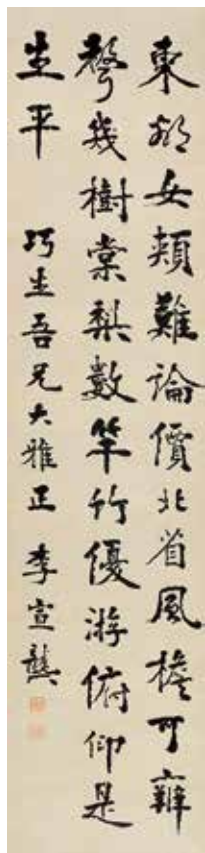 東都女頰難論價北省風檐可辨
聲幾樹棠梨數竿竹優游俯仰是
生平
巧生吾兄大雅正 李宣龔